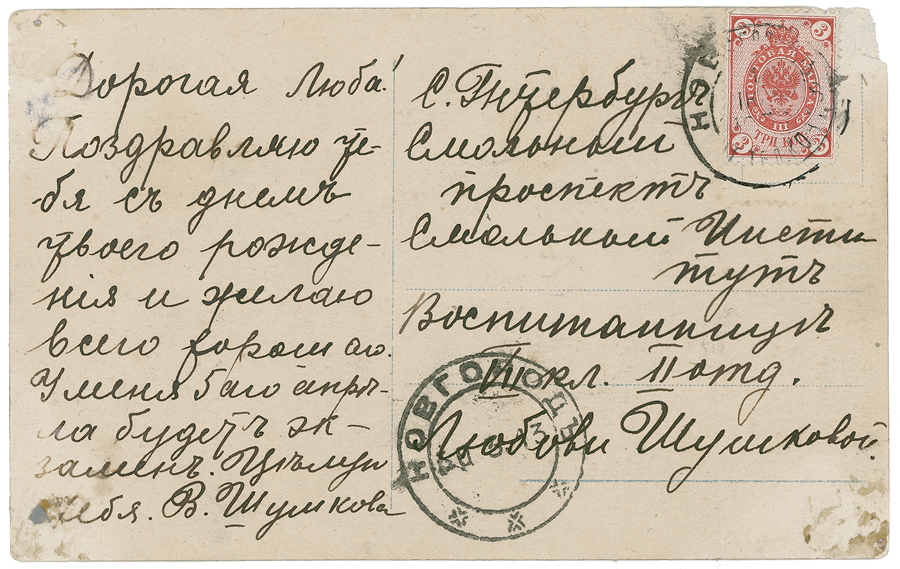 Дорогая Люба!
Поздравляю те-
бя съ днемъ
твоего рожде-
нія и желаю
всего хорошаго.
У меня 5 аго апрѣ-
ля будетъ эк-
заменъ. Цѣлую
тебя. В. Шушкова
С. Петербургъ
Смольный
проспектъ
Смольный Инсти
тутъ
Воспитанницѣ
III кл. II отд.
Любови Шушковой.
3 3
ПОЧТОВАЯ МАРКА
III
3 ТРИ КОП. 3
НОВГОРОДЪ